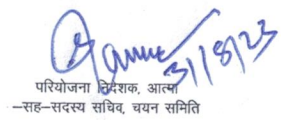 31/8/23
परियोजना निदेशक, आत्मा
–सह–सदस्य सचिव, चयन समिति